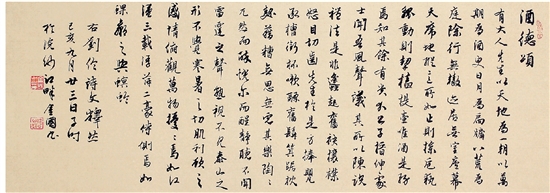 酒德頌
有大人先生以天地為一朝以萬
期為須臾日月為扃牖八荒為
庭除行無轍迹居無室廬幕
天席地縱意所如止則操卮執
觚動則挈榼提壺唯酒是務
焉知其餘有貴介公子搢紳處
士聞吾風聲議其所以陳說
禮法是非蠭起奮袂攘襟
怒目切齒先生於是方捧罌
承槽銜杯漱醪奮髯踑踞枕
麴藉糟無思無慮其樂陶陶
兀然而醉恍爾而醒靜聽不聞
雷霆之聲熟視不見泰山之
形不覺寒暑之切肌利欲之
感情俯觀萬物擾擾焉如江
漢三載浮萍二豪侍側焉如
蜾蠃之與螟蛉
右劉伶詩文
己亥九月廿三日子時
於